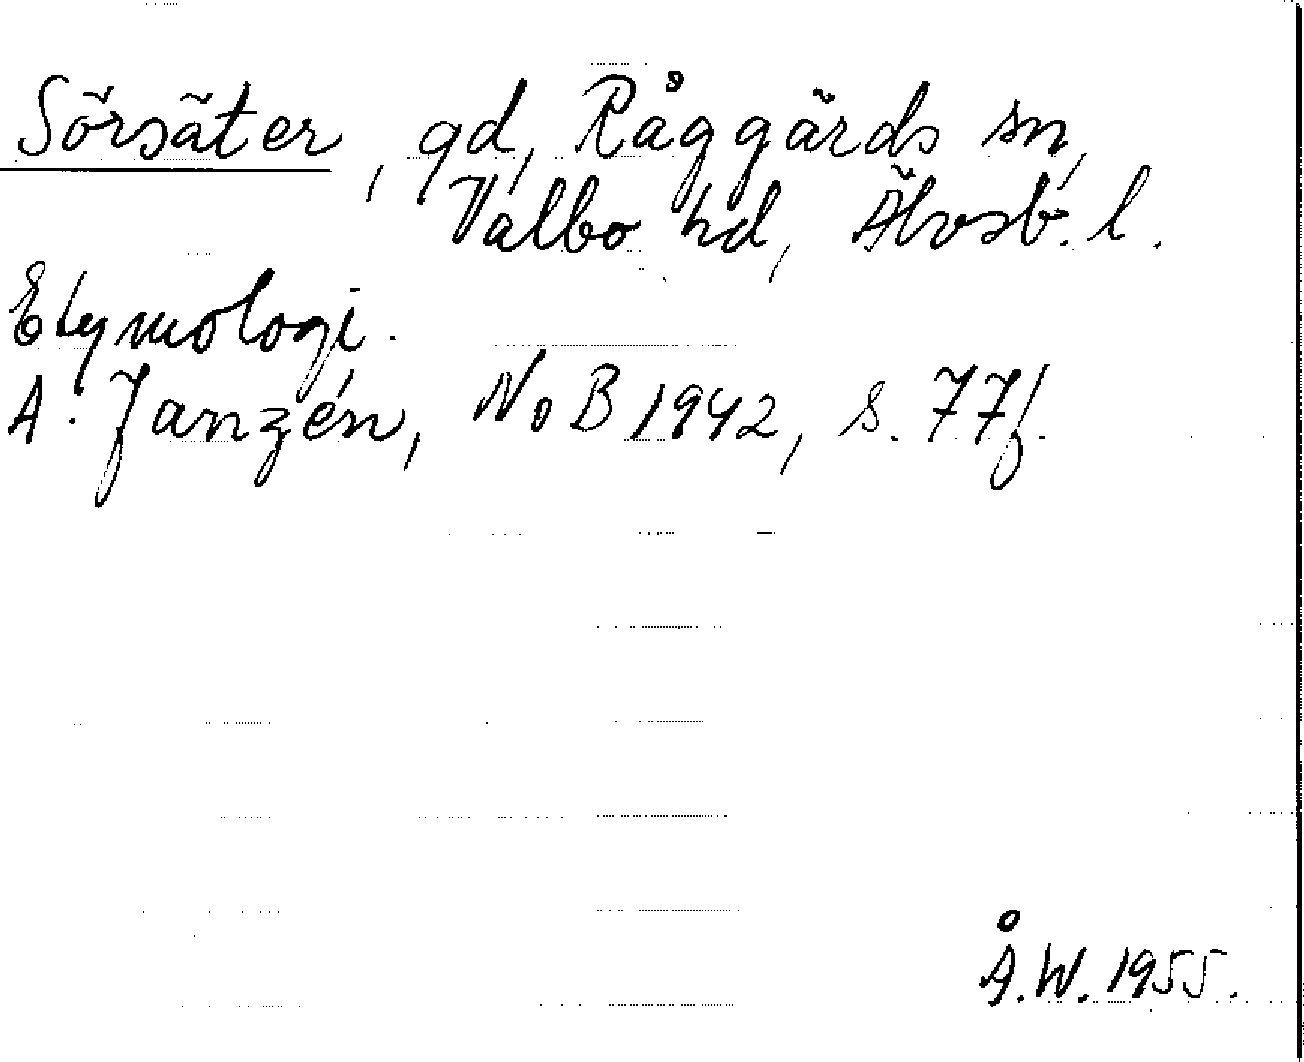 Sörsäter, gd, Råggärds sn,
Valbo hd, Älvsb. l.
Etymologi.
A. Janzén, NoB 1942, s. 77f.
Å.W. 1955.